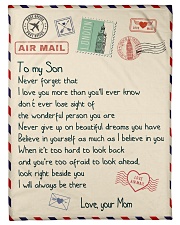 AIR MAIL
To my Son
Never forget that
I love you more than you'll ever know
don't ever lose sight of
the wonderful person you are
Never give up on beautiful dreams you have
Believe in yourself as much as I believe in you
When it's too hard to look back
and you're too afraid to look ahead,
look right beside you
I will always be there
Love, your Mom